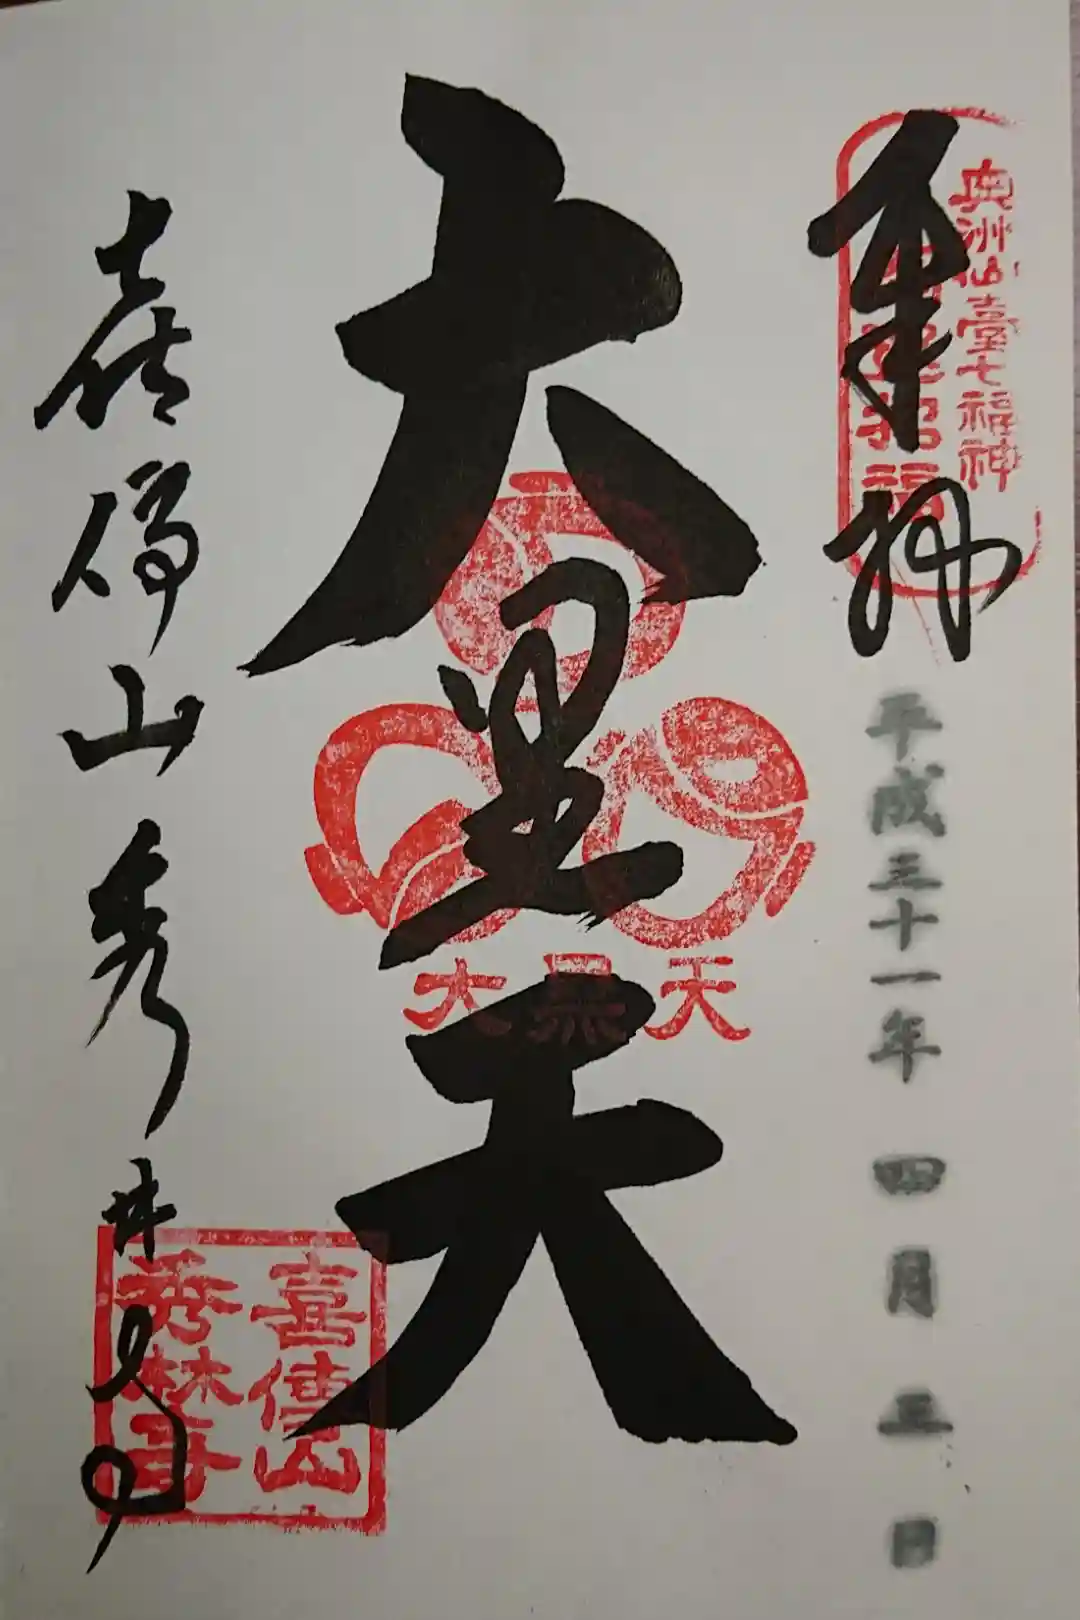 奉拝
奥州仙臺七福神
招福
平成三十一年 四月 三日
大黒天
大黒天
喜傳山秀林寺
喜傳山
秀林寺